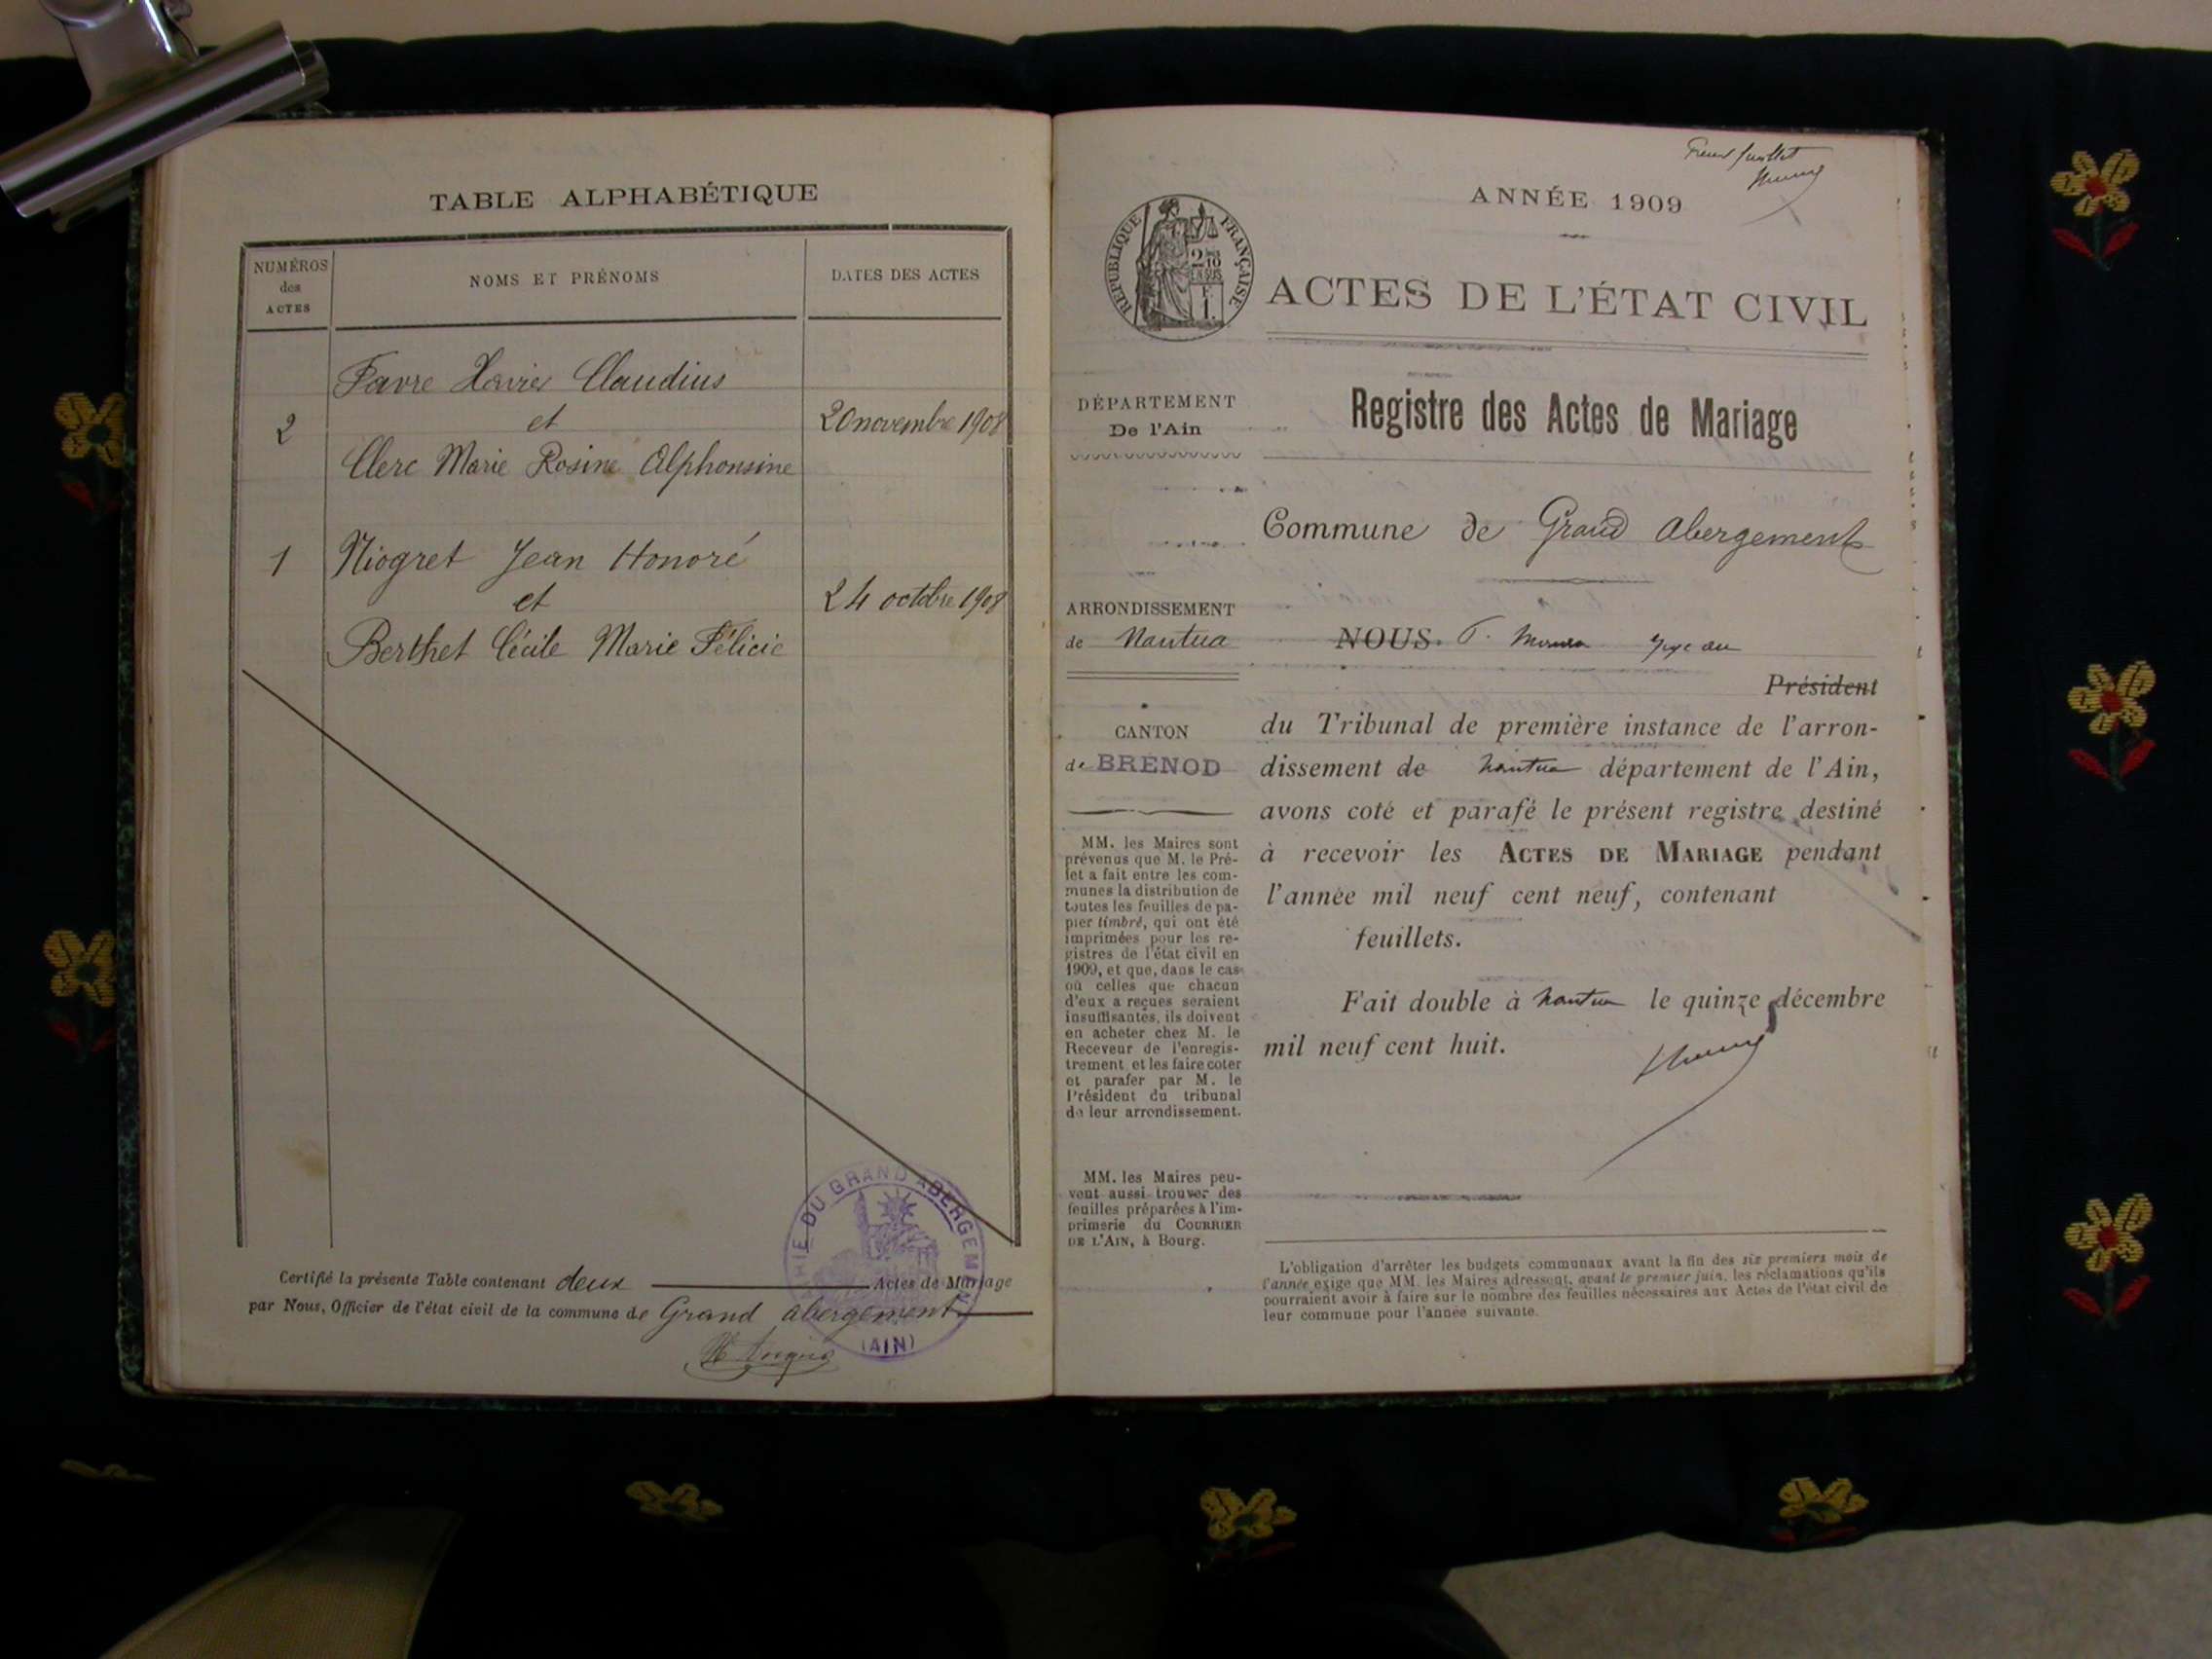 TABLE ALPHABÉTIQUE
NUMÉROS
des
ACTES
NOMS ET PRÉNOMS
DATES DES ACTES
Favre Xavier Claudius
2
et
20 novembre 1908
Clerc Marie Rosine Alphonsine
1
Niogret Jean Honoré
et
24 octobre 1908
Berthet Cécile Marie Félicie
Certifié la présente Table contenant deux Actes de Mariage
par Nous, Officier de l'état civil de la commune de Grand abergement
MAIRIE DU GRAND ABERGEMENT
(AIN)
feuillet
ANNÉE 1909
RÉPUBLIQUE FRANÇAISE
2 10
EN SUS
F.
1.
ACTES DE L'ÉTAT CIVIL
DÉPARTEMENT
De l'Ain
Registre des Actes de Mariage
Commune de Grand Abergement
ARRONDISSEMENT
de Nantua
NOUS. juge au
Président
du Tribunal de première instance de l'arron-
dissement de nantua département de l'Ain,
avons coté et parafé le présent registre destiné
à recevoir les ACTES DE MARIAGE pendant
l'année mil neuf cent neuf, contenant
feuillets.
Fait double à nantua le quinze décembre
mil neuf cent huit.
CANTON
de BRÉNOD
MM. les Maires sont
prévenus que M. le Pré-
fet a fait entre les com-
munes la distribution de
toutes les feuilles de pa-
pier timbré, qui ont été
imprimées pour les re-
gistres de l'état civil en
1909, et que, dans le cas
où celles que chacun
d'eux a reçues seraient
insuffisantes, ils doivent
en acheter chez M. le
Receveur de l'enregis-
trement et les faire coter
et parafer par M. le
Président du tribunal
de leur arrondissement.
MM. les Maires peu-
vent aussi trouver des
feuilles préparées à l'im-
primerie du COURRIER
DE L'AIN, à Bourg.
L'obligation d'arrêter les budgets communaux avant la fin des six premiers mois de
l'année exige que MM. les Maires adressent, avant le premier juin, les réclamations qu'ils
pourraient avoir à faire sur le nombre des feuilles nécessaires aux Actes de l'état civil de
leur commune pour l'année suivante.